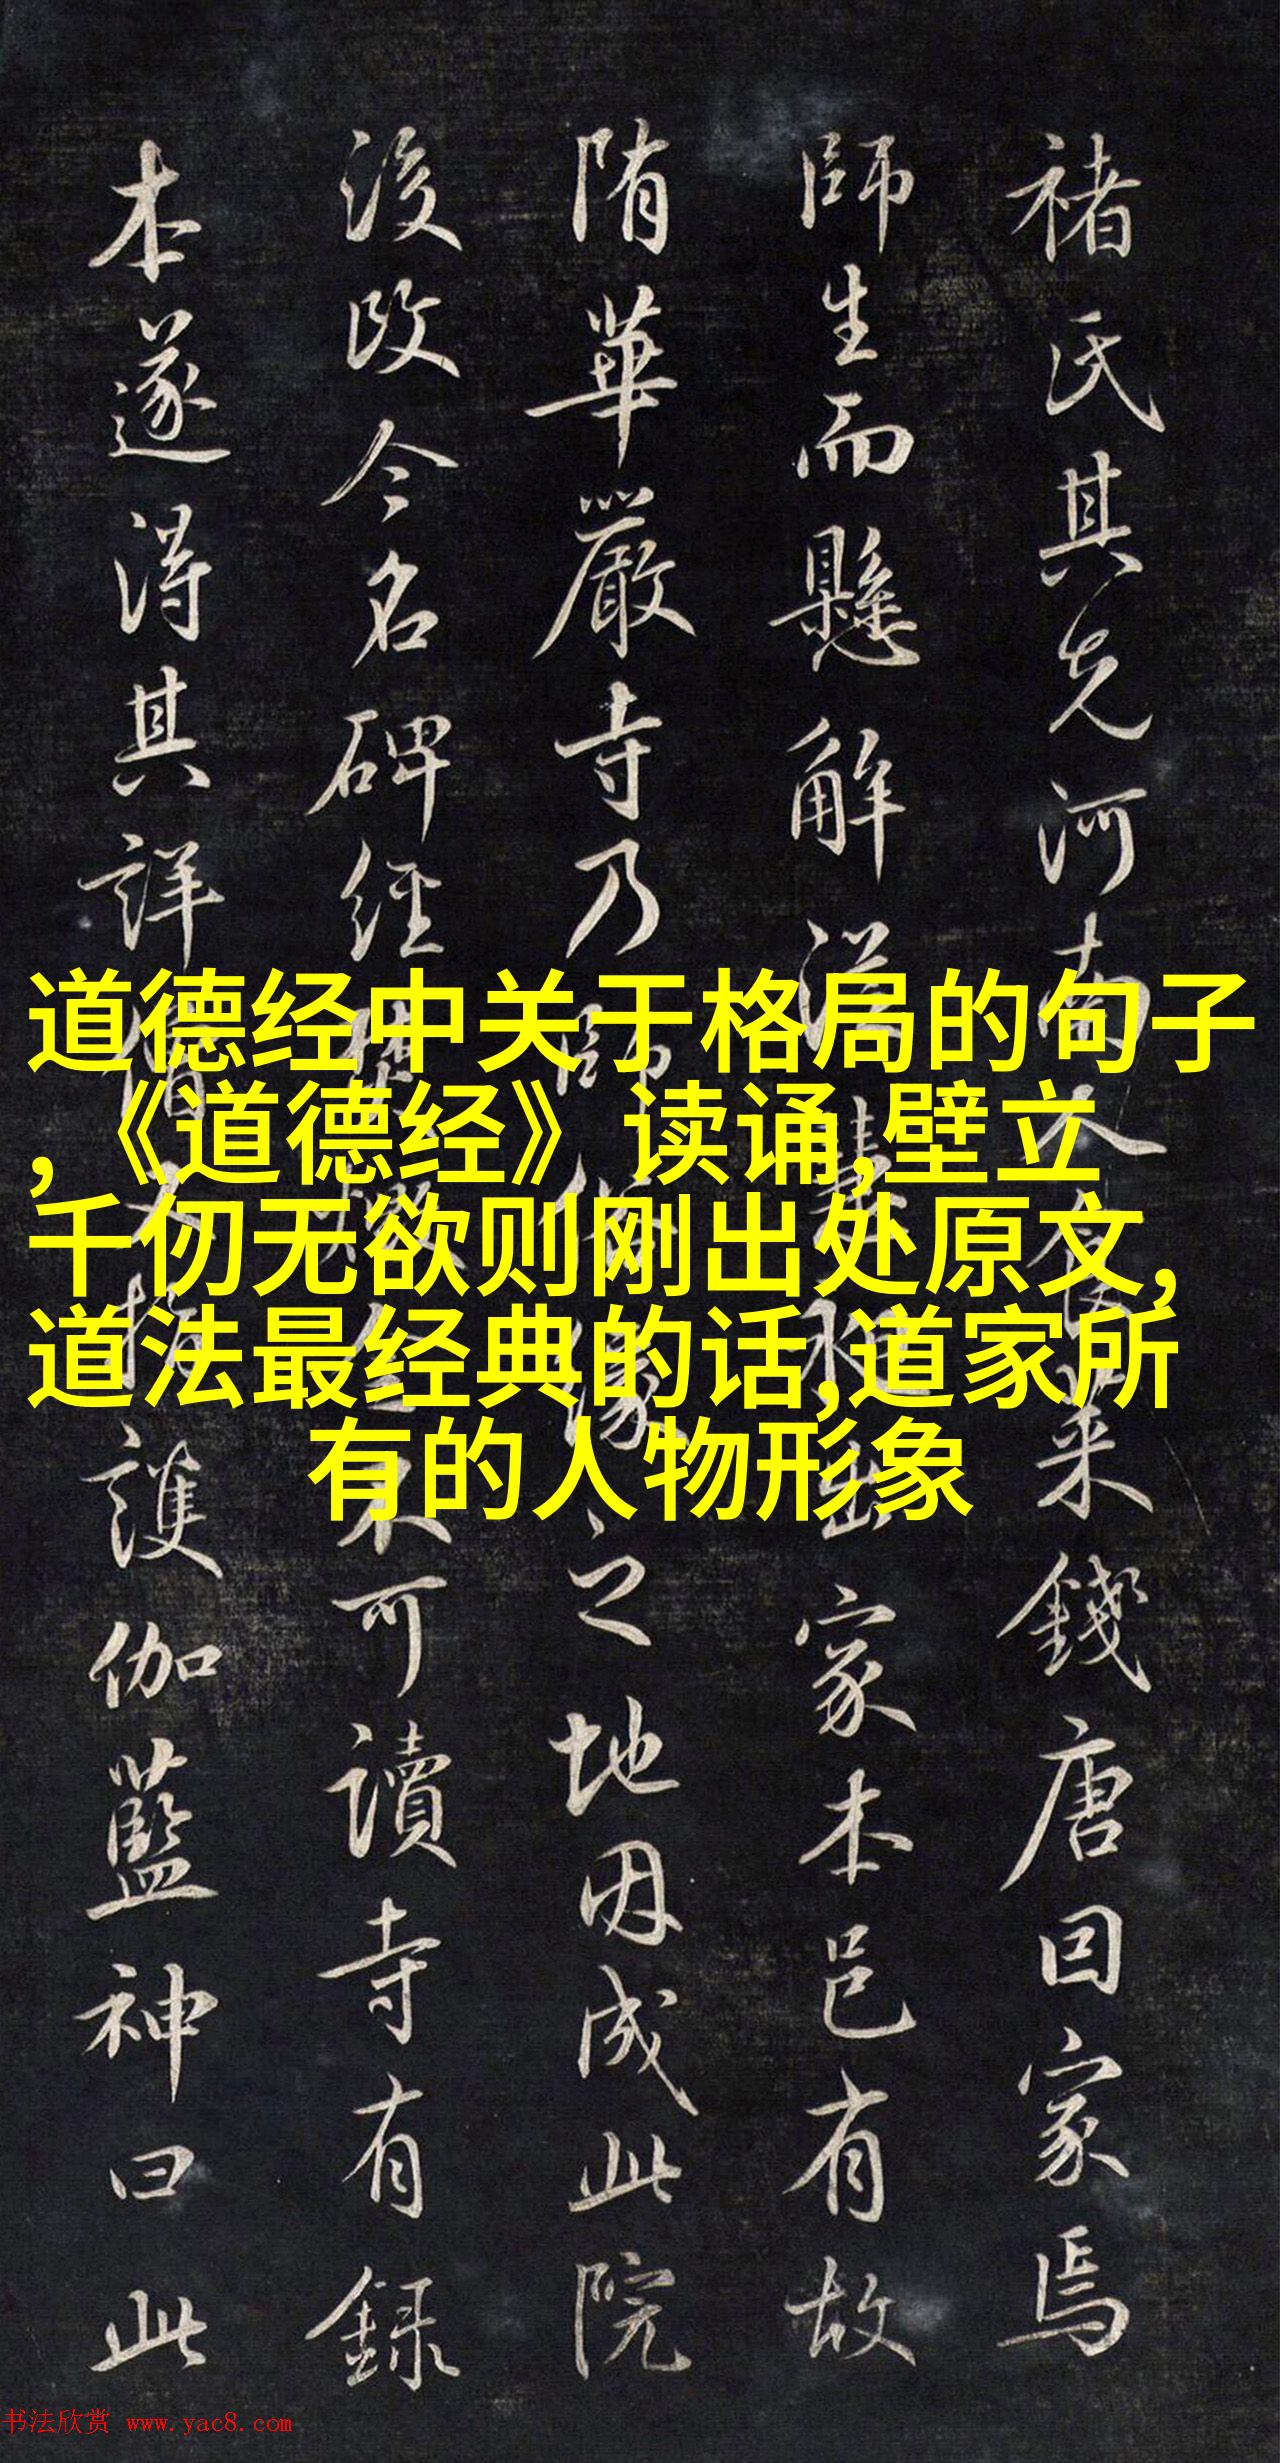 褚氏其先河南人食菜錢唐因家焉
師生而懸解深慧永出家本邑有故
隋華嚴寺乃師俗緣之地因成此院
後改今名碑經不可讀寺有録
本遂得其詳護伽藍神曰此
道德经中关于格局的句子
,《道德经》读诵,壁立
千仞无欲则刚出处原文,
道法最经典的话,道家所
有的人物形象
书法欣赏 www.yac8.com